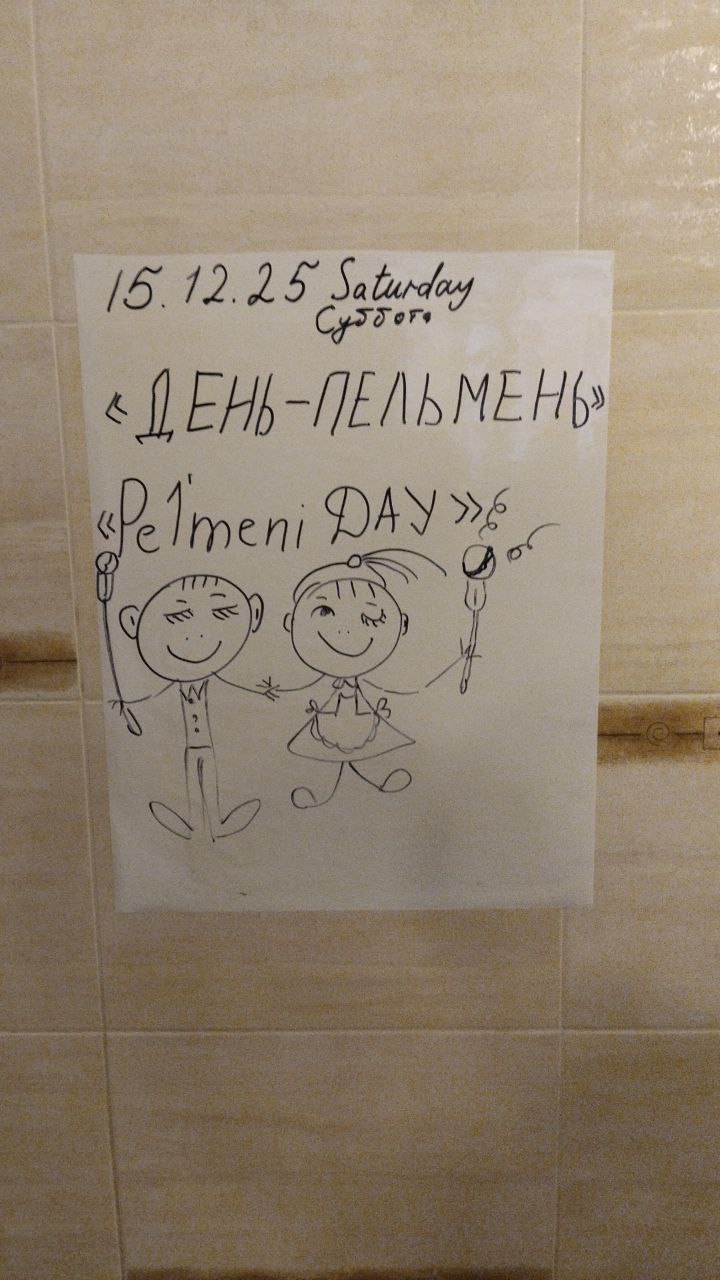 15.12.25 Saturday
Суббота
«ДЕНЬ-ПЕЛЬМЕНЬ»
«Pel'meni DAY»